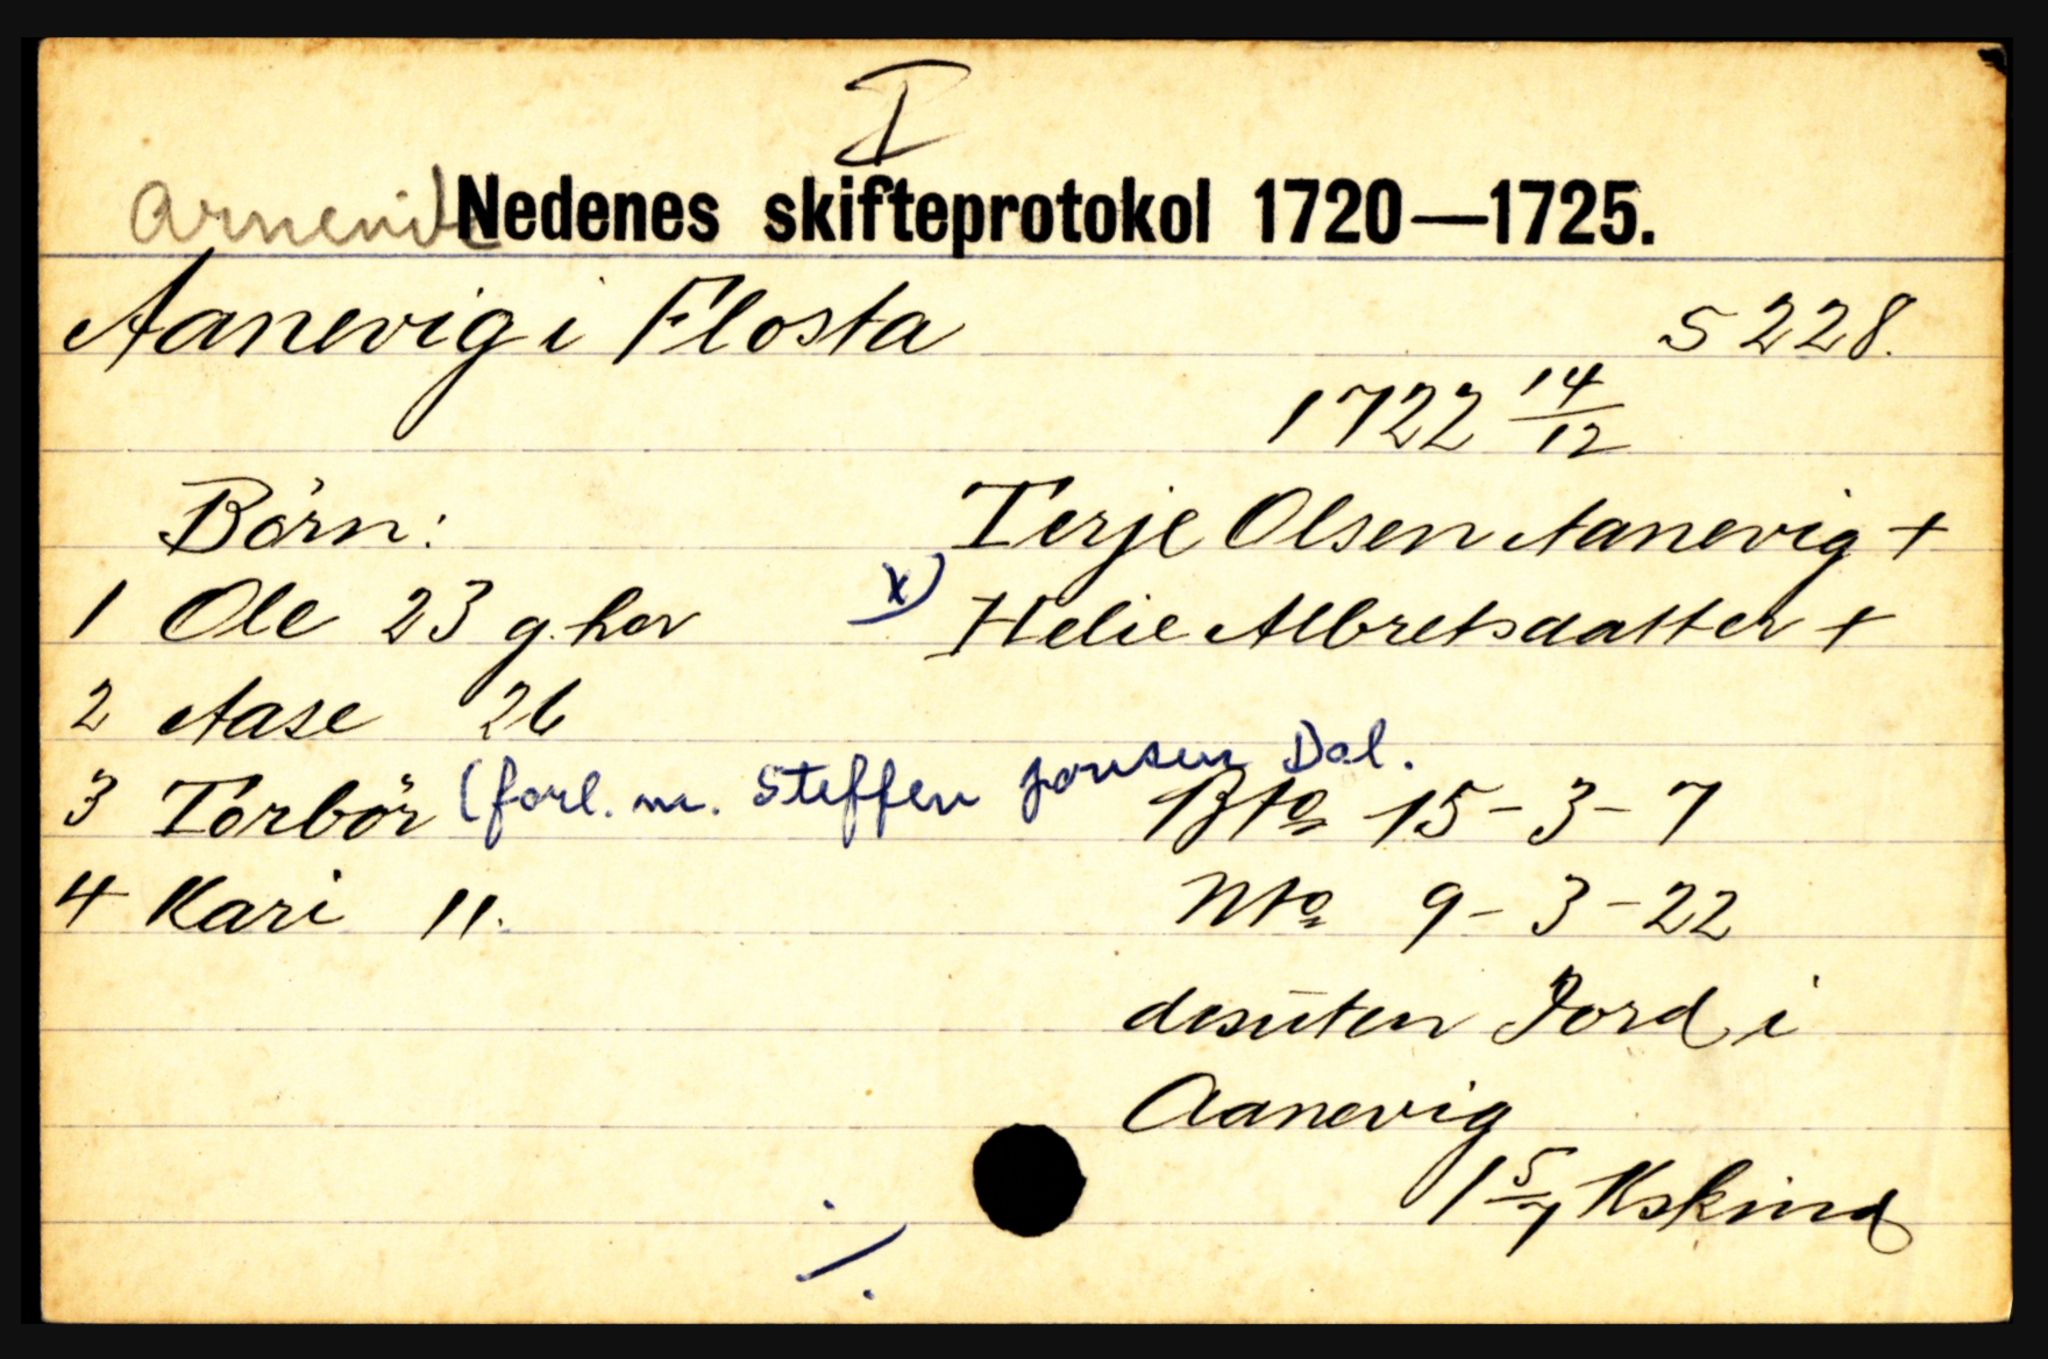 I
Nedenes skifteprotokol 1720—1725.
Aanevig i Flosta S 228.
1722 14/12
Börn: Terje Olsen Aanevig +
1 Ole 23 g. har x) Helie Albretsdatter +
2 Aase 26
3 Torbör (forl. m. Steffen Jonsen Dal.
Bto 15-3-7
4 Kari 11. Nto 9-3-22
desuten Jord i
Aanevig
1 5/7 Kskind